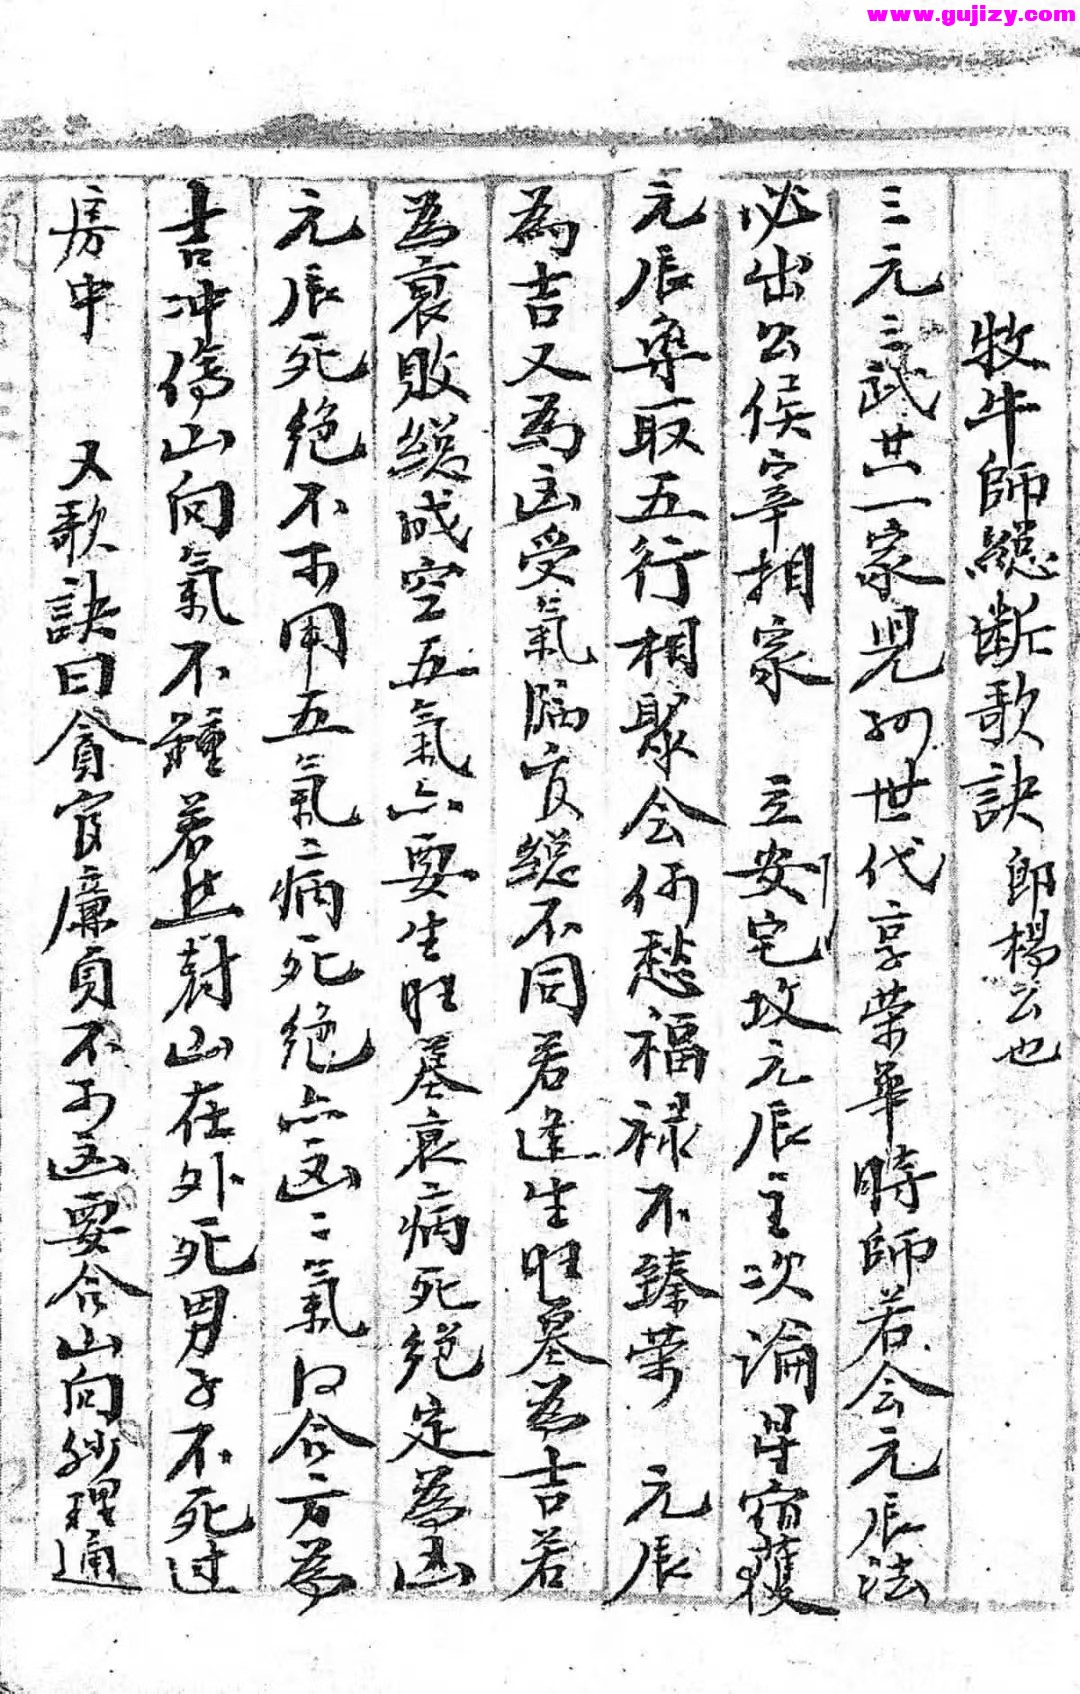 www.gujizy.com
牧牛師總斷歌訣 郎楊公也
三元三武共一家児孙世代享荣華時師若会元辰法
必出公侯宰相家 立安宅坟元辰主次論星宿獲
元辰專取五行相聚会何愁福禄不臻荣 元辰
為吉又為凶受氣臨官總不同若逢生旺墓為吉若
為衰敗總成空五氣亦要生旺墓衰病死绝定為凶
元辰死绝不可用五氣病死绝亦凶二氣合方為
吉冲傷山向氣不鍾若然封山在外死男子不死过
房中 又歌訣曰貪官廉貞不可凶要合山向妙理通